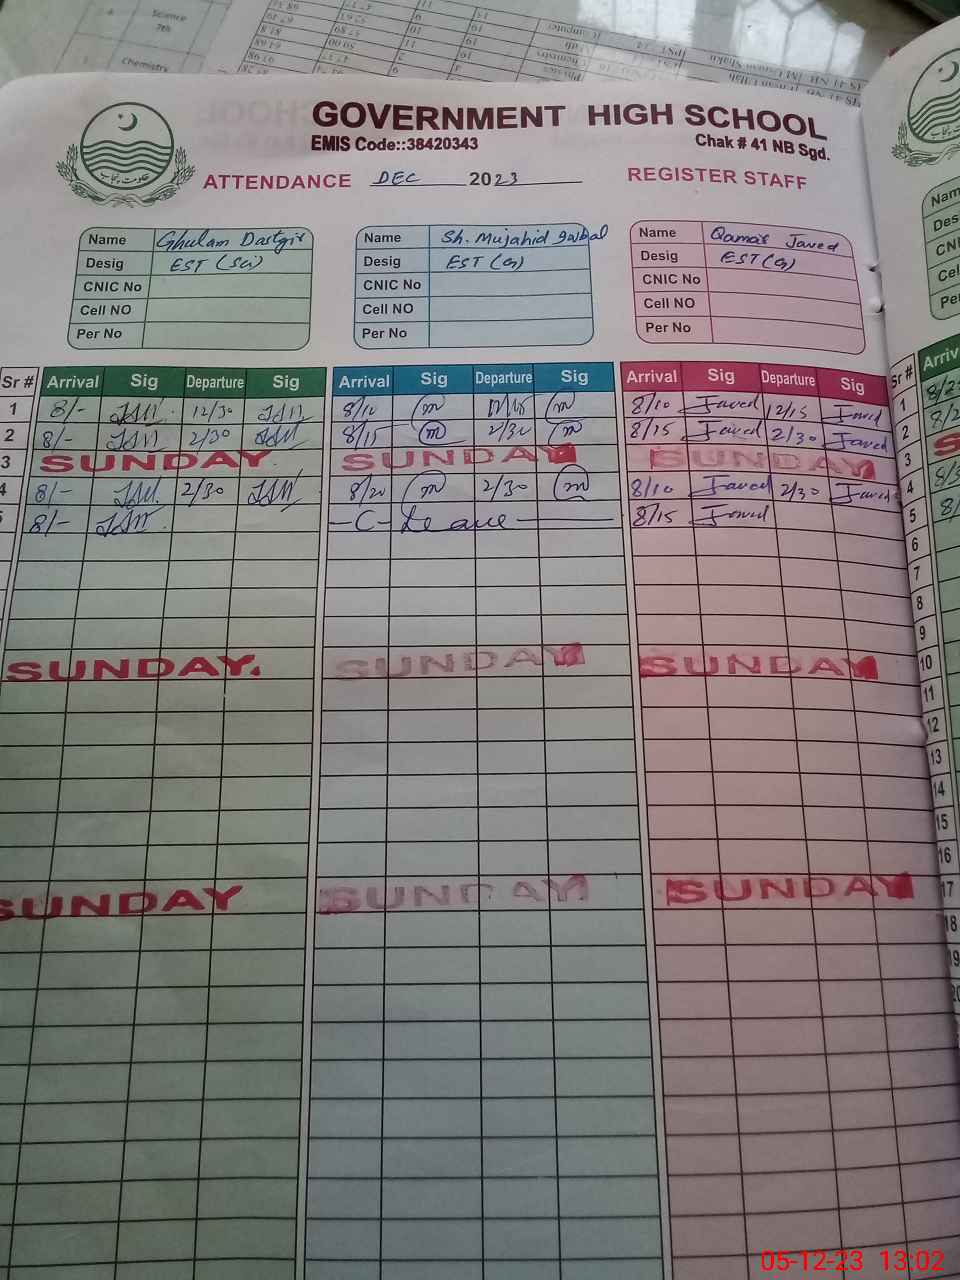 Science
7th
Chemistry
GOVERNMENT HIGH SCHOOL
EMIS Code::38420343
Chak # 41 NB Sgd.
حکومت پنجاب
ATTENDANCE DEC 2023 REGISTER STAFF
Name Ghulam Dastgir Name Sh. Mujahid Iqbal Name Qamar Javed
Desig EST (Sci) Desig EST (G) Desig EST (G)
CNIC No CNIC No CNIC No
Cell NO Cell NO Cell NO
Per No Per No Per No
Sr # Arrival Sig Departure Sig Arrival Sig Departure Sig Arrival Sig Departure Sig Sr #
1 8/- 12/30 8/10 8/10 Javed 12/15 Javed 1
2 8/- 2/30 8/15 2/30 8/15 Javed 2/30 Javed 2
3 SUNDAY SUNDAY SUNDAY 3
4 8/- 2/30 8/20 2/30 8/10 Javed 2/30 Javed 4
8/- -C- Leave 8/15 Javed 5
6
7
8
9
SUNDAY. SUNDAY SUNDAY 10
11
12
13
14
15
16
SUNDAY SUNDAY SUNDAY 17
18
19
20
05-12-23 13:02